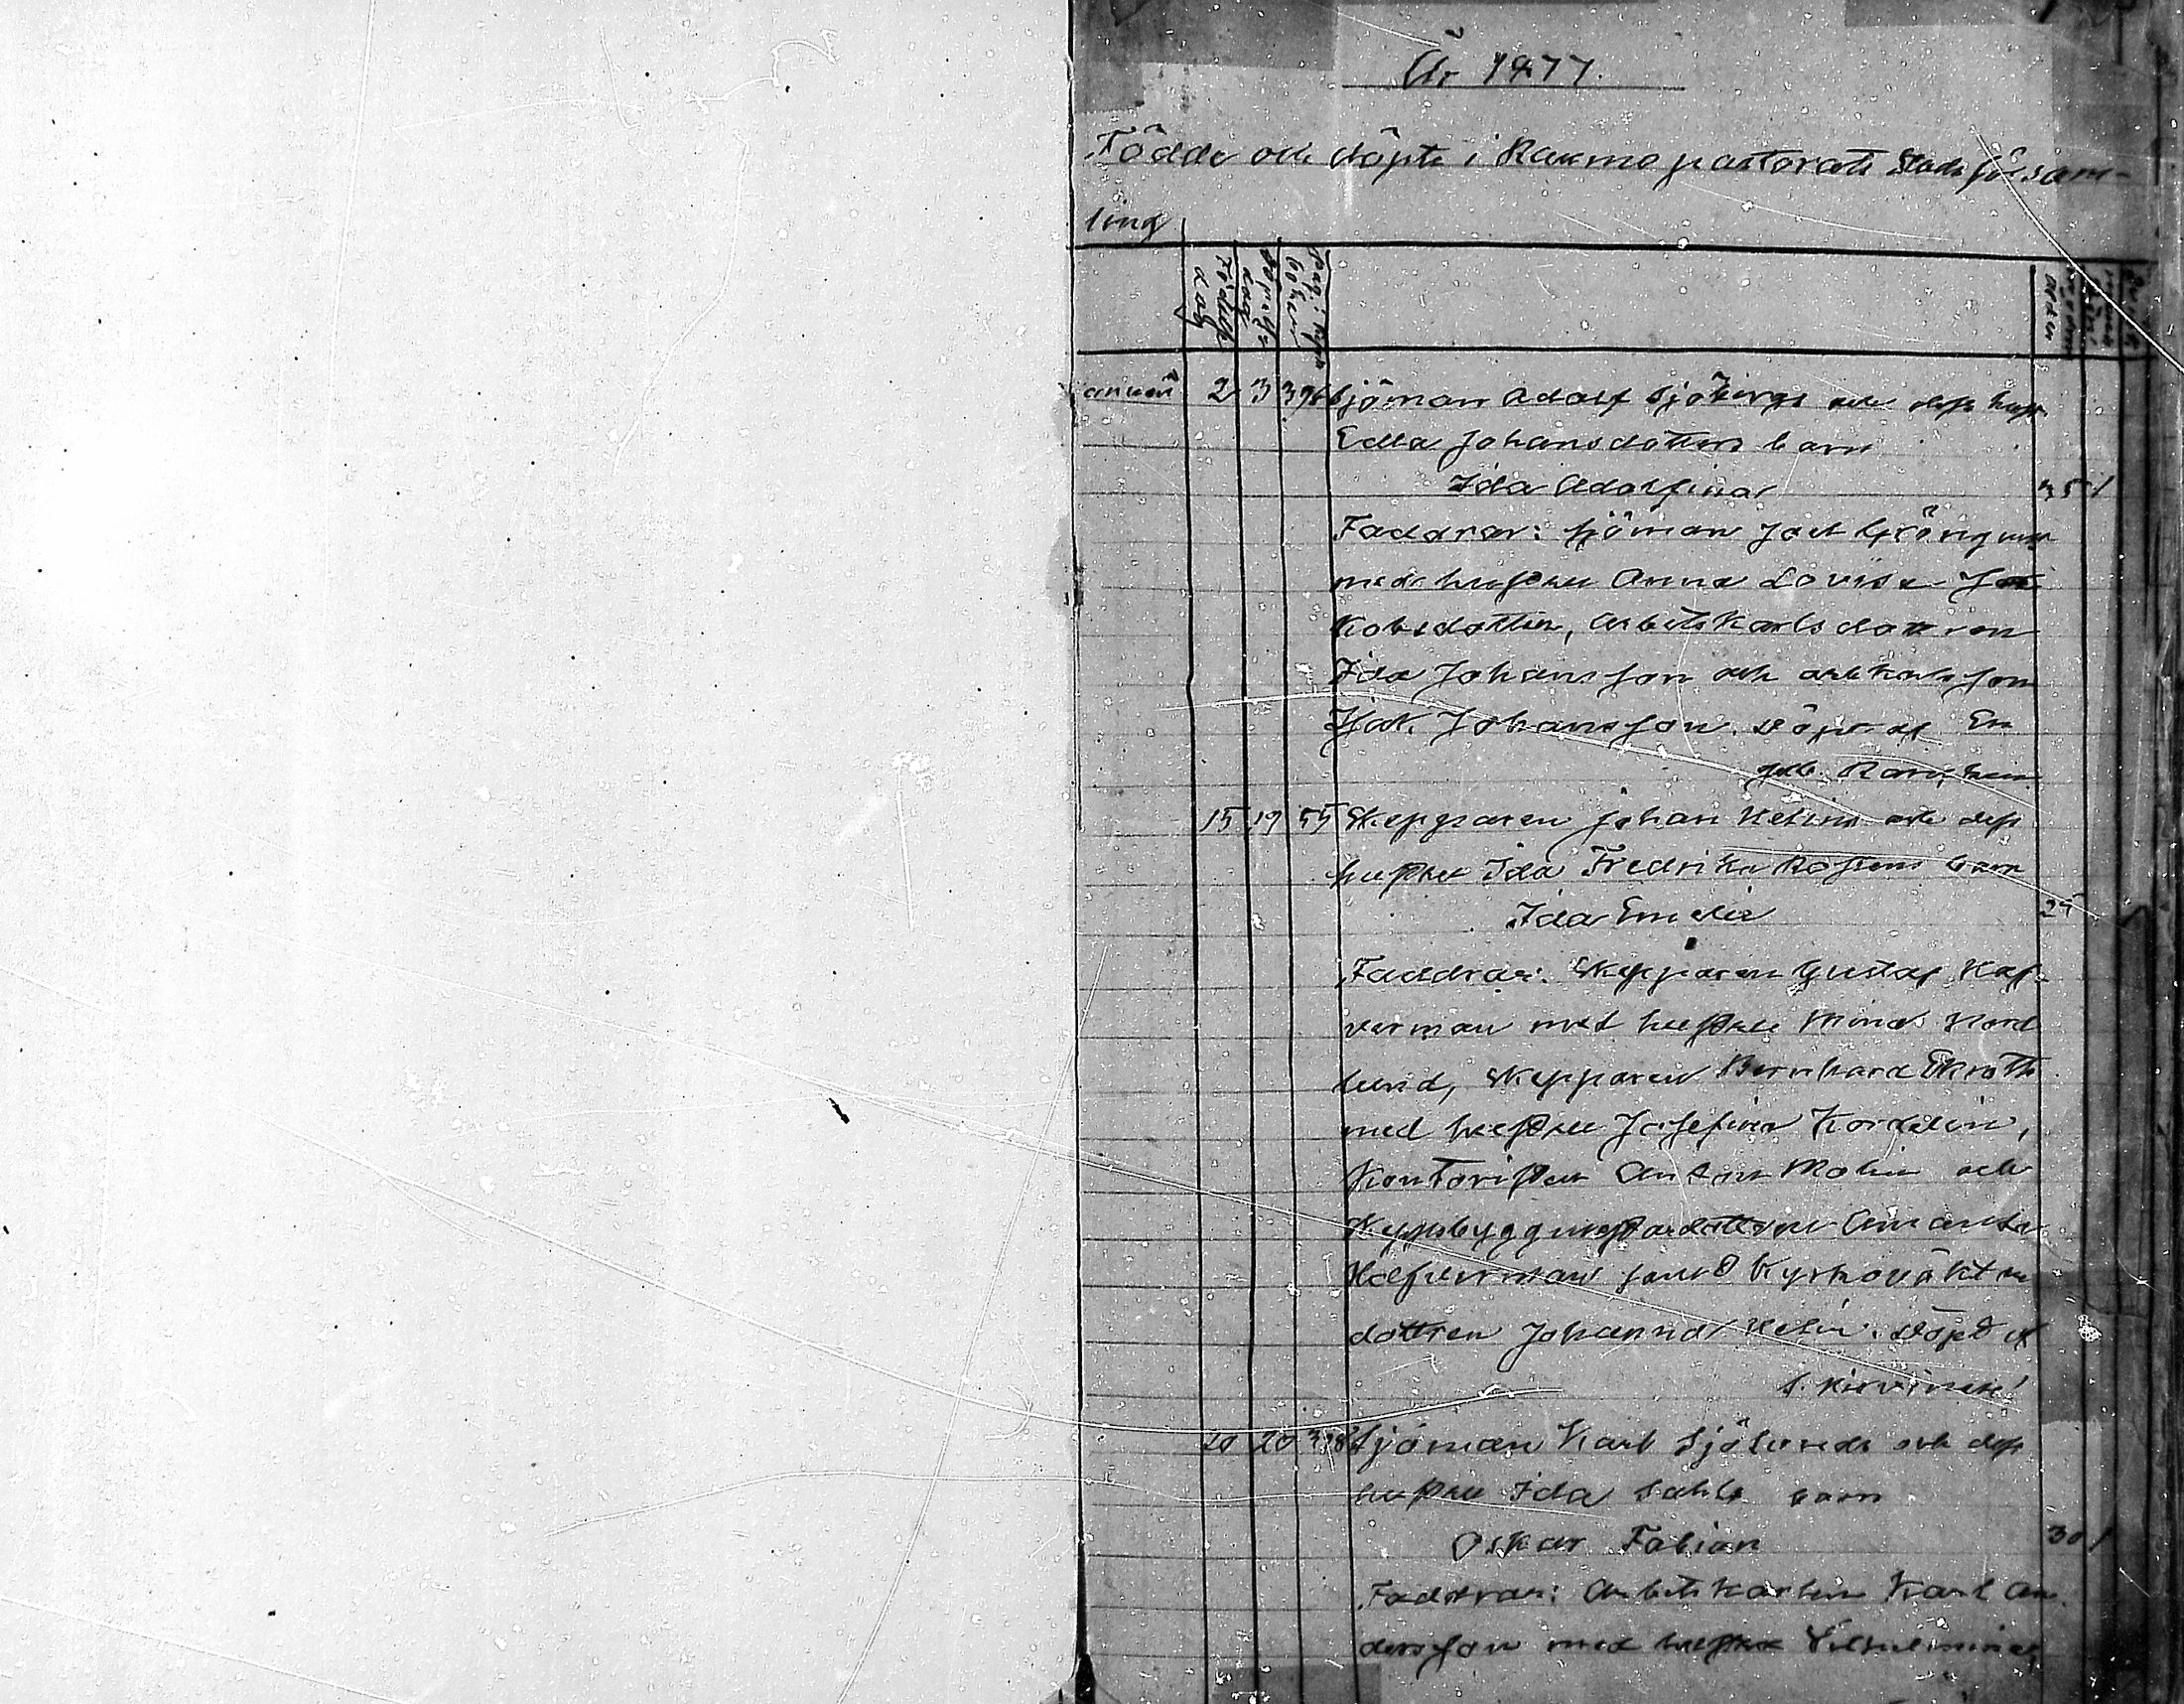 År 1877.
Födde och döpte i Raumo pastorats Stadsförsam-
ling
Födelse
dag
Döpelse
dag
pag. i kyrko
boken
2 3 396 Sjöman Adolf Sjöbergs och dess hust
Edla Johansdotters barn
Ida Adolfina 35 1
Faddrar: sjöman
med hustru Anna Lovisa Ja
kobsdotter, Arbetskarlsdottren
Ida Johansson och arbkarls son
Isak Johansson. Döpt af
15 19 55 Skepparen Johan Helins och dess
hustru Ida Fredrika barn
Ida Emelie 29
Faddrar: Skepparen Gustaf Haf-
verman med hustru Mina Nord
lund, Skepparen Bernhard Ekroth
med hustru Josefina Nordelin,
Kontoristen Anton Molin och
Skeppsbyggmästardottren Amanda
Hafverman samt Kyrkoväktare
dottren Johanna Helin. Döpt af
20 20 398 Sjöman Karl Sjölunds och dess
hustru Ida barn
Oskar Fabian 30 1
Faddrar: Arbetskarlen Karl An
dersson med hustru Vilhelmina